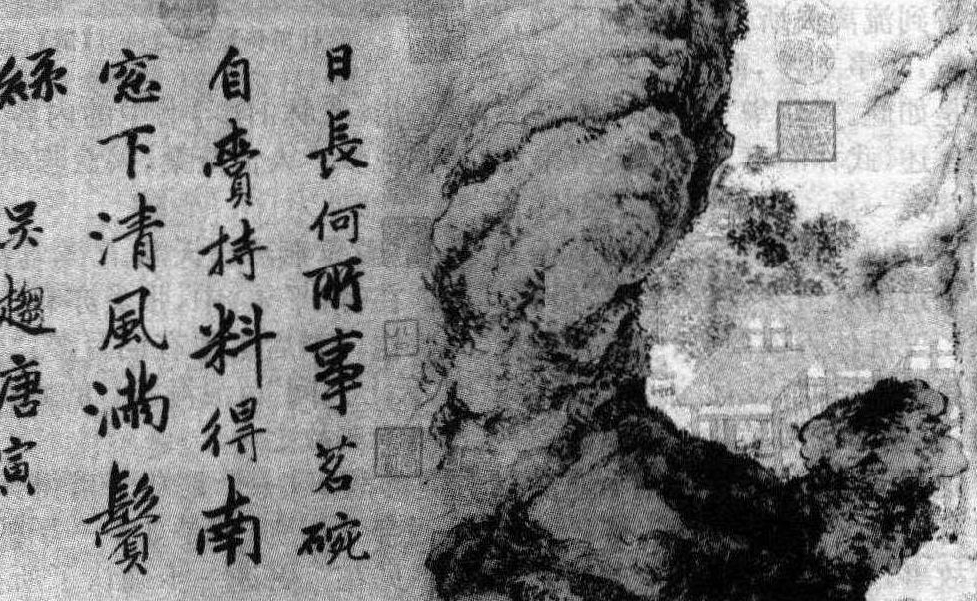 日長何所事茗碗
自賷持料得南
窓下清風滿鬢
絲 吳趨唐寅